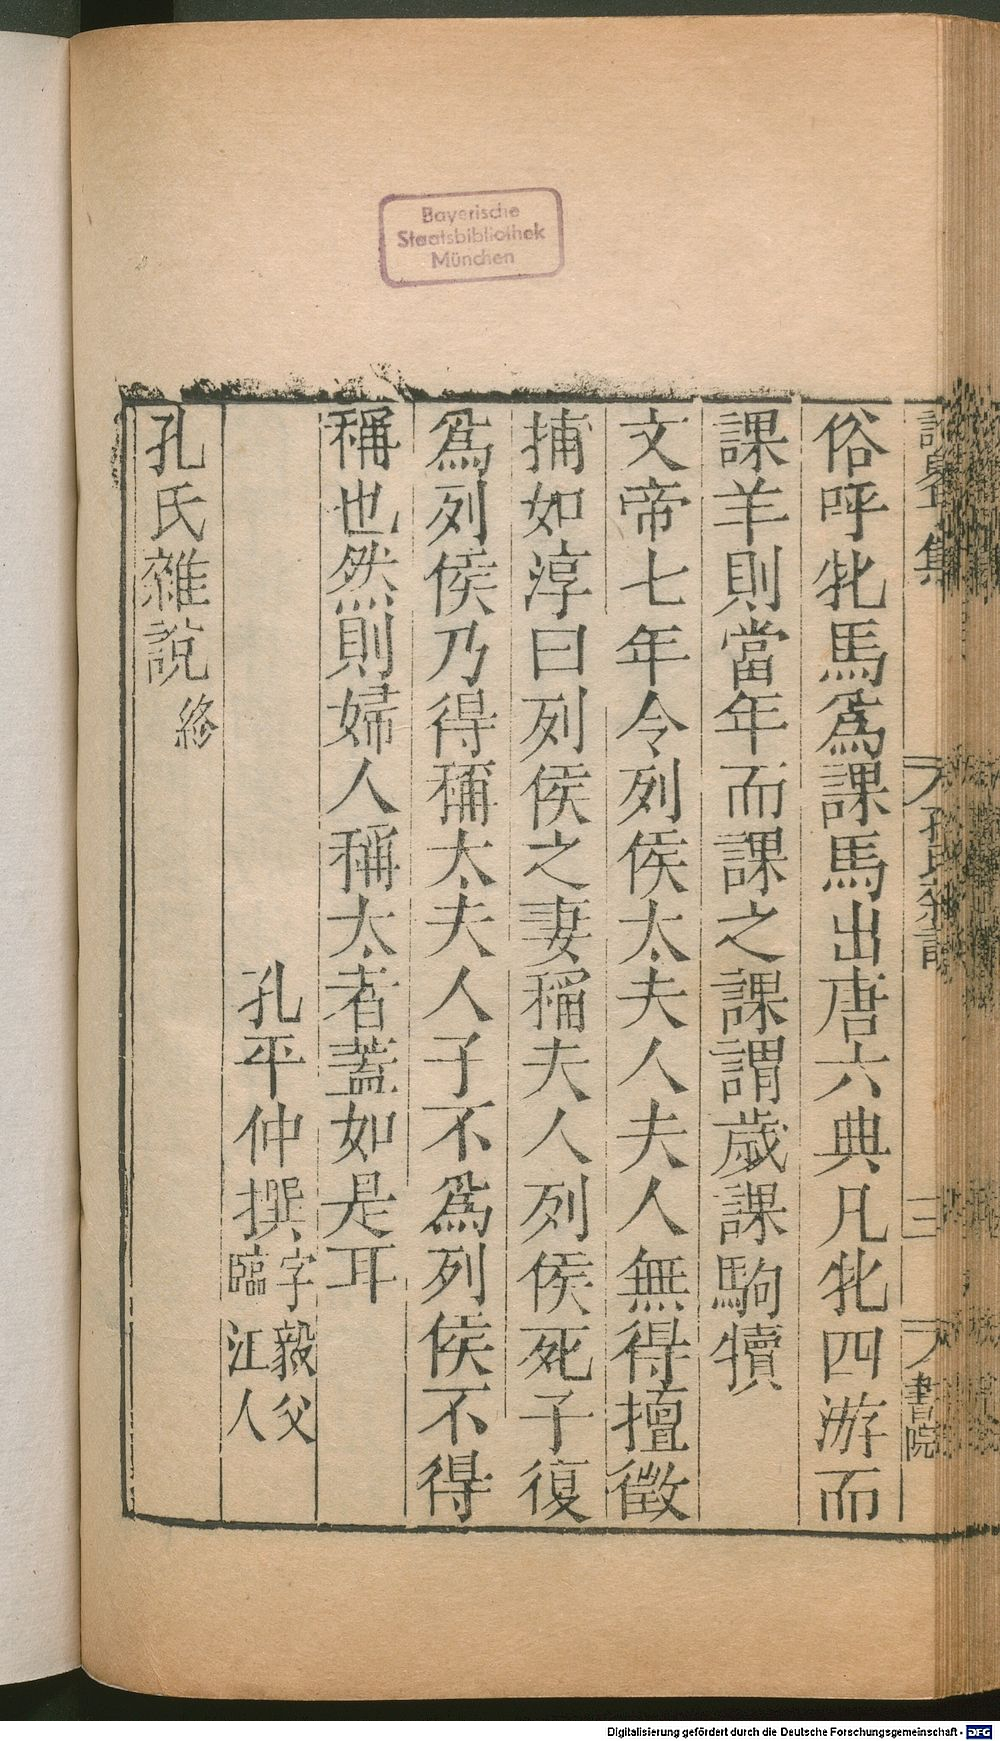 Bayerische
Staatsbibliothek
München
俗呼牝馬爲課馬出唐六典凡牝四游而
課羊則當年而課之課謂歲課駒犢
文帝七年令列侯太夫人夫人無得擅徵
捕如淳曰列侯之妻稱夫人列侯死子復
爲列侯乃得稱太夫人子不爲列侯不得
稱也然則婦人稱太者蓋如是耳
孔平仲撰字毅父臨江人
孔氏雜說終
集
孔氏雜說
三
書院
Digitalisierung gefördert durch die Deutsche Forschungsgemeinschaft - DFG